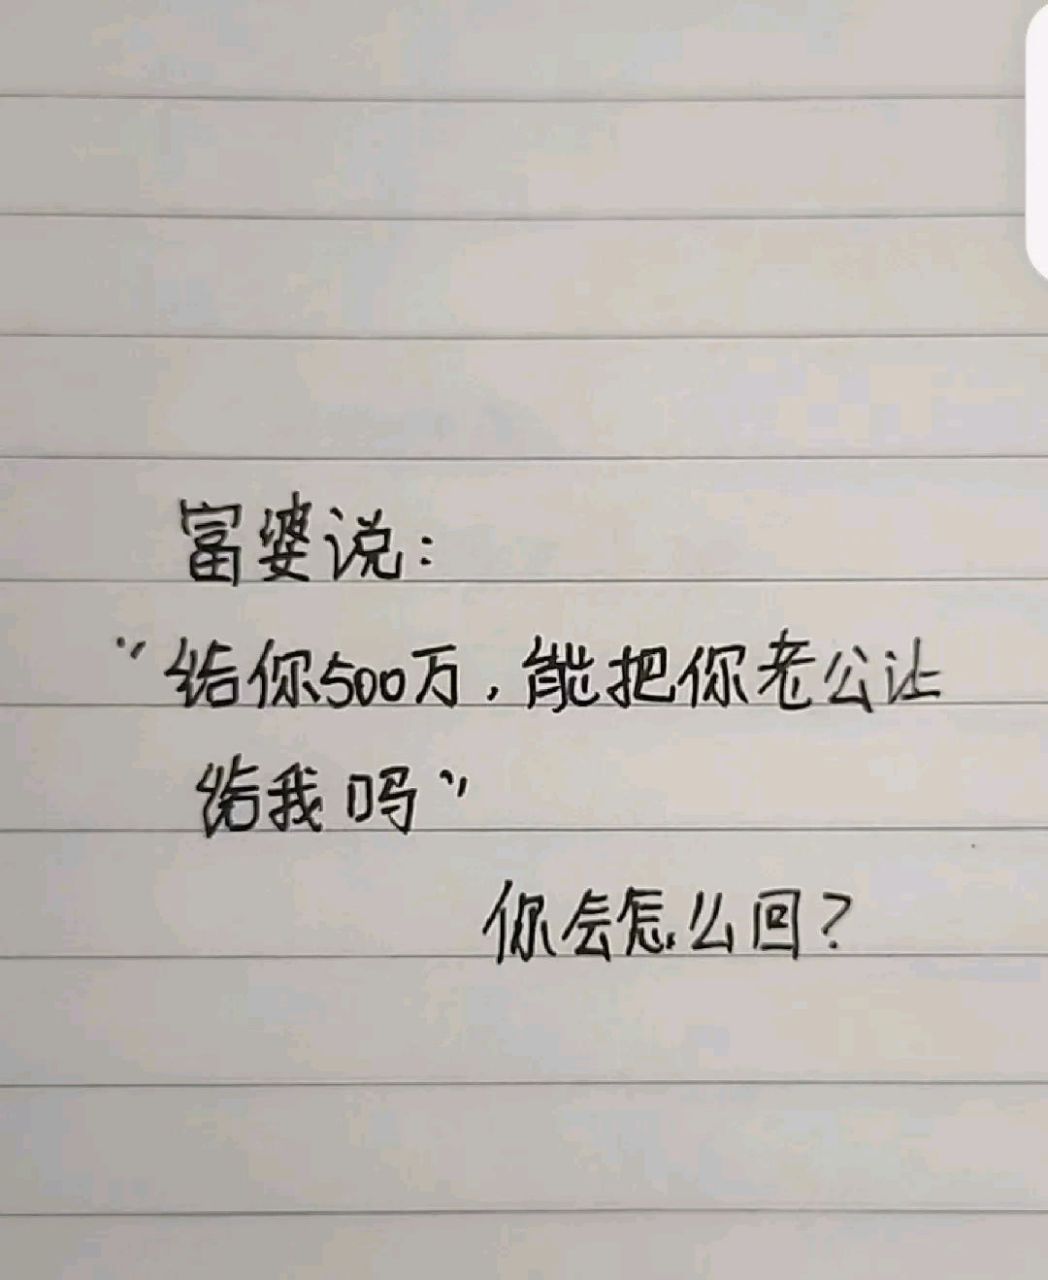 富婆说：
“给你500万，能把你老公让
给我吗”
你会怎么回？